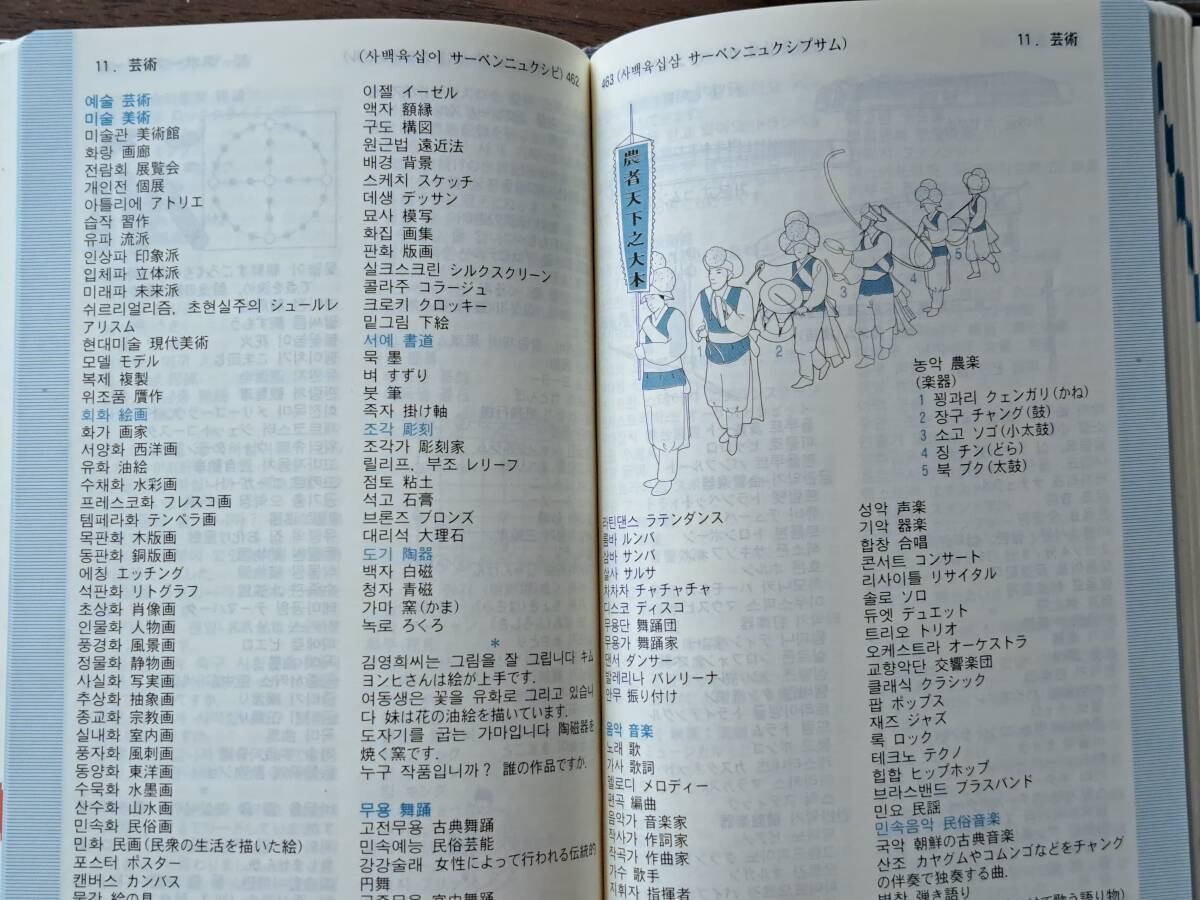 11. 芸術
(사백육십이 サーペンニュクシビ) 462
예술 芸術
미술 美術
미술관 美術館
화랑 画廊
전람회 展覧会
개인전 個展
아틀리에 アトリエ
습작 習作
유파 流派
인상파 印象派
입체파 立体派
미래파 未来派
쉬르리얼리즘, 초현실주의 シュールレ
アリスム
현대미술 現代美術
모델 モデル
복제 複製
위조품 贋作
회화 絵画
화가 画家
서양화 西洋画
유화 油絵
수채화 水彩画
프레스코화 フレスコ画
템페라화 テンペラ画
목판화 木版画
동판화 銅版画
에칭 エッチング
석판화 リトグラフ
초상화 肖像画
인물화 人物画
풍경화 風景画
정물화 静物画
사실화 写実画
추상화 抽象画
종교화 宗教画
실내화 室内画
풍자화 風刺画
동양화 東洋画
수묵화 水墨画
산수화 山水画
민속화 民俗画
민화 民画(民衆の生活を描いた絵)
포스터 ポスター
캔버스 カンバス
물감 絵の具
이젤 イーゼル
액자 額縁
구도 構図
원근법 遠近法
배경 背景
스케치 スケッチ
데생 デッサン
묘사 模写
화집 画集
판화 版画
실크스크린 シルクスクリーン
콜라주 コラージュ
크로키 クロッキー
밑그림 下絵
서예 書道
묵 墨
벼 すずり
붓 筆
족자 掛け軸
조각 彫刻
조각가 彫刻家
릴리프, 부조 レリーフ
점토 粘土
석고 石膏
브론즈 ブロンズ
대리석 大理石
도기 陶器
백자 白磁
청자 青磁
가마 窯(かま)
녹로 ろくろ
*
김영희씨는 그림을 잘 그립니다 キム
ヨンヒさんは絵が上手です.
여동생은 꽃을 유화로 그리고 있습니
다 妹は花の油絵を描いています.
도자기를 굽는 가마입니다 陶磁器を
焼く窯です.
누구 작품입니까? 誰の作品ですか.
무용 舞踊
고전무용 古典舞踊
민속예능 民俗芸能
강강술래 女性によって行われる伝統的
円舞
궁중무용 宮中舞踊
463 (사백육십삼 サーペンニュクシプサム)
11. 芸術
農者天下之大本
1
2
3
4
5
농악 農楽
(楽器)
1 꽹과리 クェンガリ(かね)
2 장구 チャング(鼓)
3 소고 ソゴ(小太鼓)
4 징 チン(どら)
5 북 プク(太鼓)
라틴댄스 ラテンダンス
룸바 ルンバ
삼바 サンバ
살사 サルサ
차차차 チャチャチャ
디스코 ディスコ
무용단 舞踊団
무용가 舞踊家
댄서 ダンサー
발레리나 バレリーナ
안무 振り付け
음악 音楽
노래 歌
가사 歌詞
멜로디 メロディー
편곡 編曲
음악가 音楽家
작사가 作詞家
작곡가 作曲家
가수 歌手
지휘자 指揮者
성악 声楽
기악 器楽
합창 合唱
콘서트 コンサート
리사이틀 リサイタル
솔로 ソロ
듀엣 デュエット
트리오 トリオ
오케스트라 オーケストラ
교향악단 交響楽団
클래식 クラシック
팝 ポップス
재즈 ジャズ
록 ロック
테크노 テクノ
힙합 ヒップホップ
브라스밴드 ブラスバンド
민요 民謡
민속음악 民俗音楽
국악 朝鮮の古典音楽
산조 カヤグムやコムンゴなどをチャング
の伴奏で独奏する曲.
병창 弾き語り